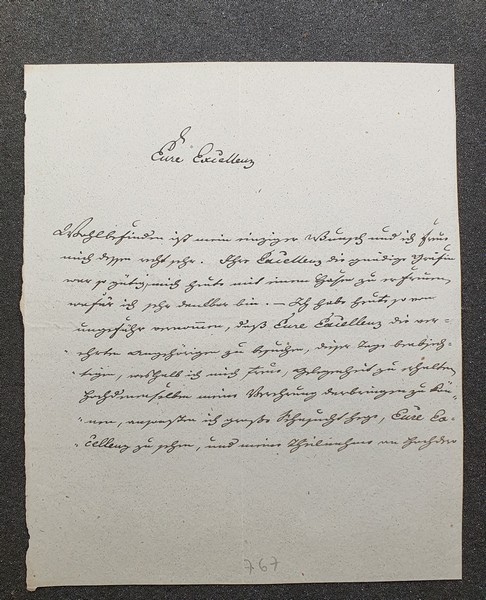 Eure Excellenz
Wohlbefinden ist mein einziger Wunsch und ich freue
mich dessen recht sehr. Ihre Excellenz die gnädige Gräfin
war so gütig, mich heute mit einem Hasen zu erfreuen,
wofür ich sehr dankbar bin. – Ich habe heute, so von
ungefähr vernommen, daß Eure Excellenz die ver-
ehrten Angehörigen zu besuchen, dieser Tage beabsich-
tigen, weshalb ich mich freue, Gelegenheit zu erhalten
Hochdenenselben meine Verehrung darbringen zu kön-
nen, ansonsten ich große Sehnsucht hege, Eure Ex-
cellenz zu sehen, und meine Theilnahme an Hochder
767